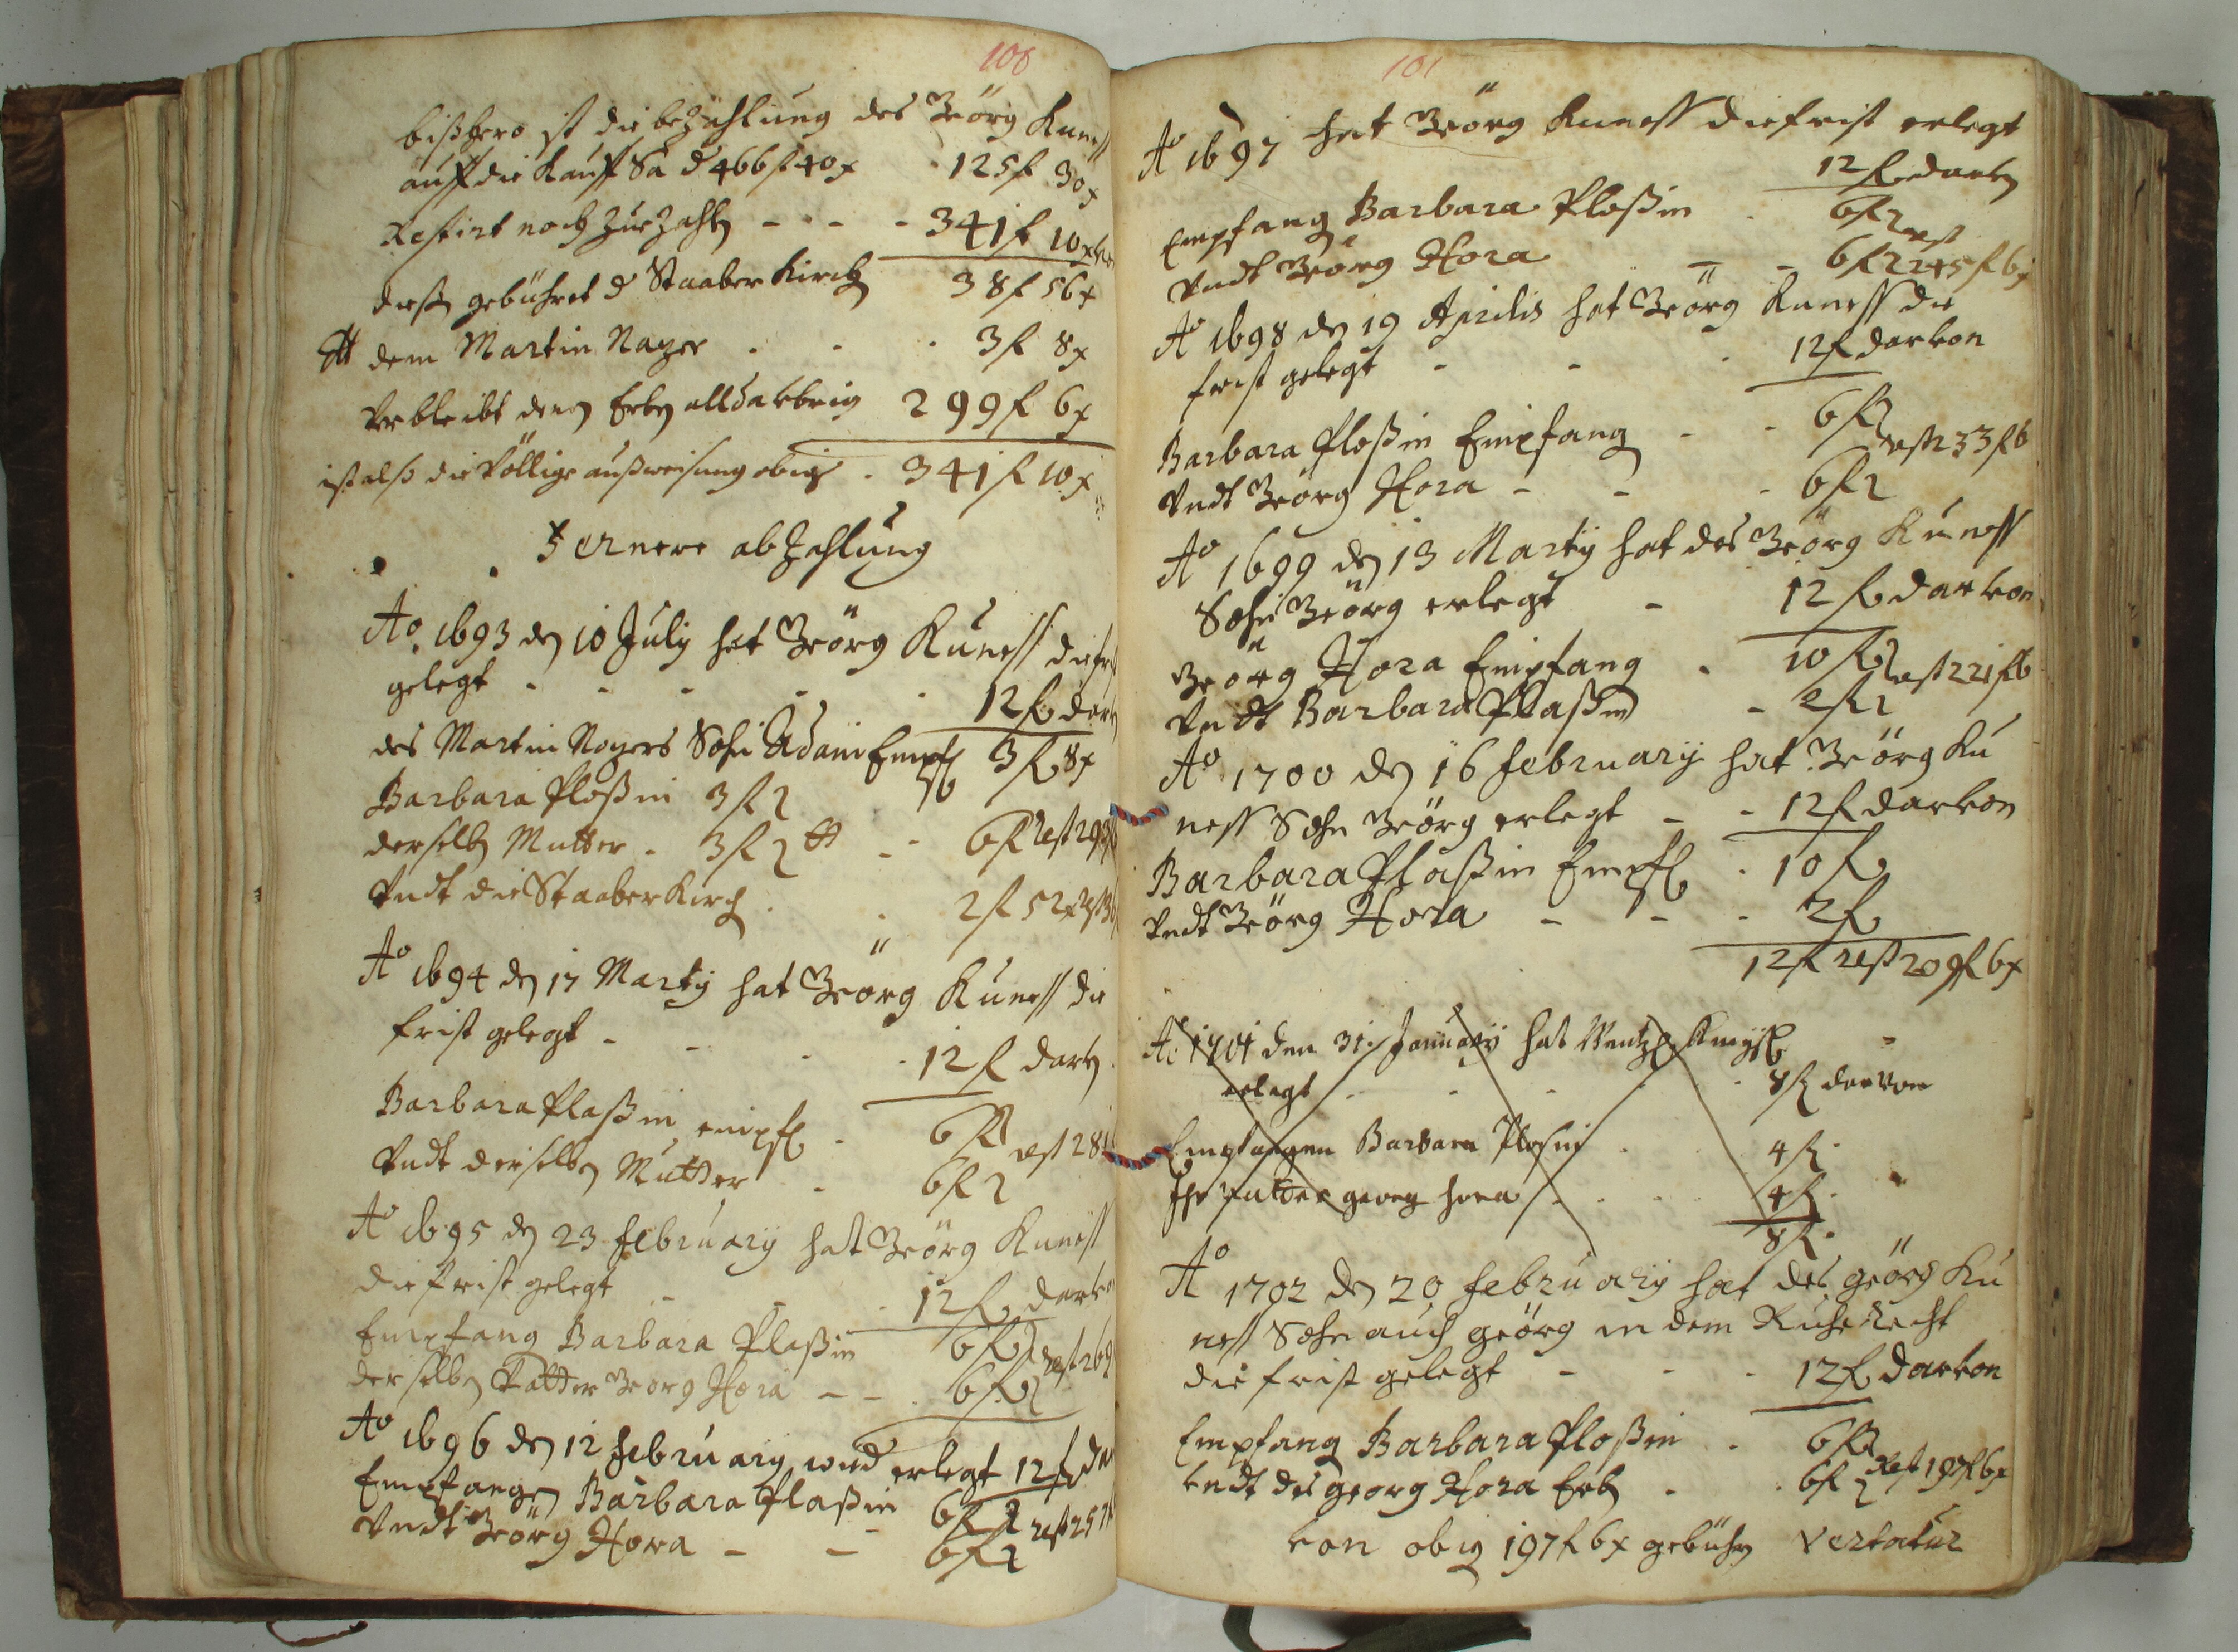 100
bißhero ist die bezahlung des Geörg Kuness
auff die Kauff Sa d 466 f 40 x . 125 f 30 x
Restirt noch zur Zahlen - - - - 341 f 10 x
dießen gebühret d Staaber Kirch 38 f 56 x
tt dem Martin Nazer . . . 3 f 8 x
Verbleibt denen Erben 299 f 6 x
ist alß die Völlige außweisung obige . 341 f 10 x
Fernere abzahlung
Ao. 1693 den 10 July hat Geörg Kuness die fr
gelegt - - - - - 12 f darv
des Martin Nazers Sohn Adam Empf 3 f 8 x
Barbara Ploßin 3 f
derselben Mutter - 3 f tt - - 6 f rest 293
Vndt die Staaber Kirch . . 2 f 52 x rest 36
Ao 1694 den 17 Marty hat Geörg Kuness die
frist gelegt - - - - 12 f darv
Barbara Plaßin empf - 6 f rest 281
Vndt derselben Mutter - 6 f
Ao 1695 den 23 february hat Geörg Kuness
die frist gelegt - - - 12 f darvo
Empfang Barbara Plaßin 6 f rest 269
derselben Vatter Georg Hora - - . 6 f
Ao 1696 den 12 february wird erlegt 12 f dar
Empfangen Barbara Plaßin 6 f rest 257
Vndt Geörg Hora - - 6 f
101
Ao 1697 hat Geörg Kuness die frist erlegt
12 f darvon
Empfang Barbara Ploßin . 6 f rest
Vndt Geörg Hora - - 6 f 245 f 6 x
Ao 1698 den 19 Aprilis hat Geörg Kuness die
frist gelegt - - - 12 f darvon
Barbara Ploßin Empfang - - 6 f rest 233 f 6
Vndt Geörg Hora - - - 6 f
Ao 1699 den 13 Marty hat des Geörg Kuness
Sohn Geörg erlegt - 12 f darvon
Geörg Hora Empfang . 10 f rest 221 f 6
Vndt Barbara Plaßin - 2 f
Ao 1700 den 16 february hat Geörg Ku
ness Sohn Geörg erlegt - - 12 f darvon
Barbara Plaßin Empf . 10 f
Vndt Geörg Hora - - - 2 f
12 f rest 209 f 6 x
Ao 1701 den 31. January hat Wentzl
erlegt - - - - 8 f darvon
Empfangen Barbara Ploßin . 4 f.
Ihr Vatter georg hora . . . 4 f.
8 f.
Ao 1702 den 20 february hat des geörg Ku
ness Sohn auch geörg in dem Ruhe Recht
die frist gelegt - - - 12 f darvon
Empfang Barbara Ploßin . 6 f rest 197 f 6 x
Vndt des georg Hora Erb . . 6 f
von obig 197 f 6 x gebühr Vertatur